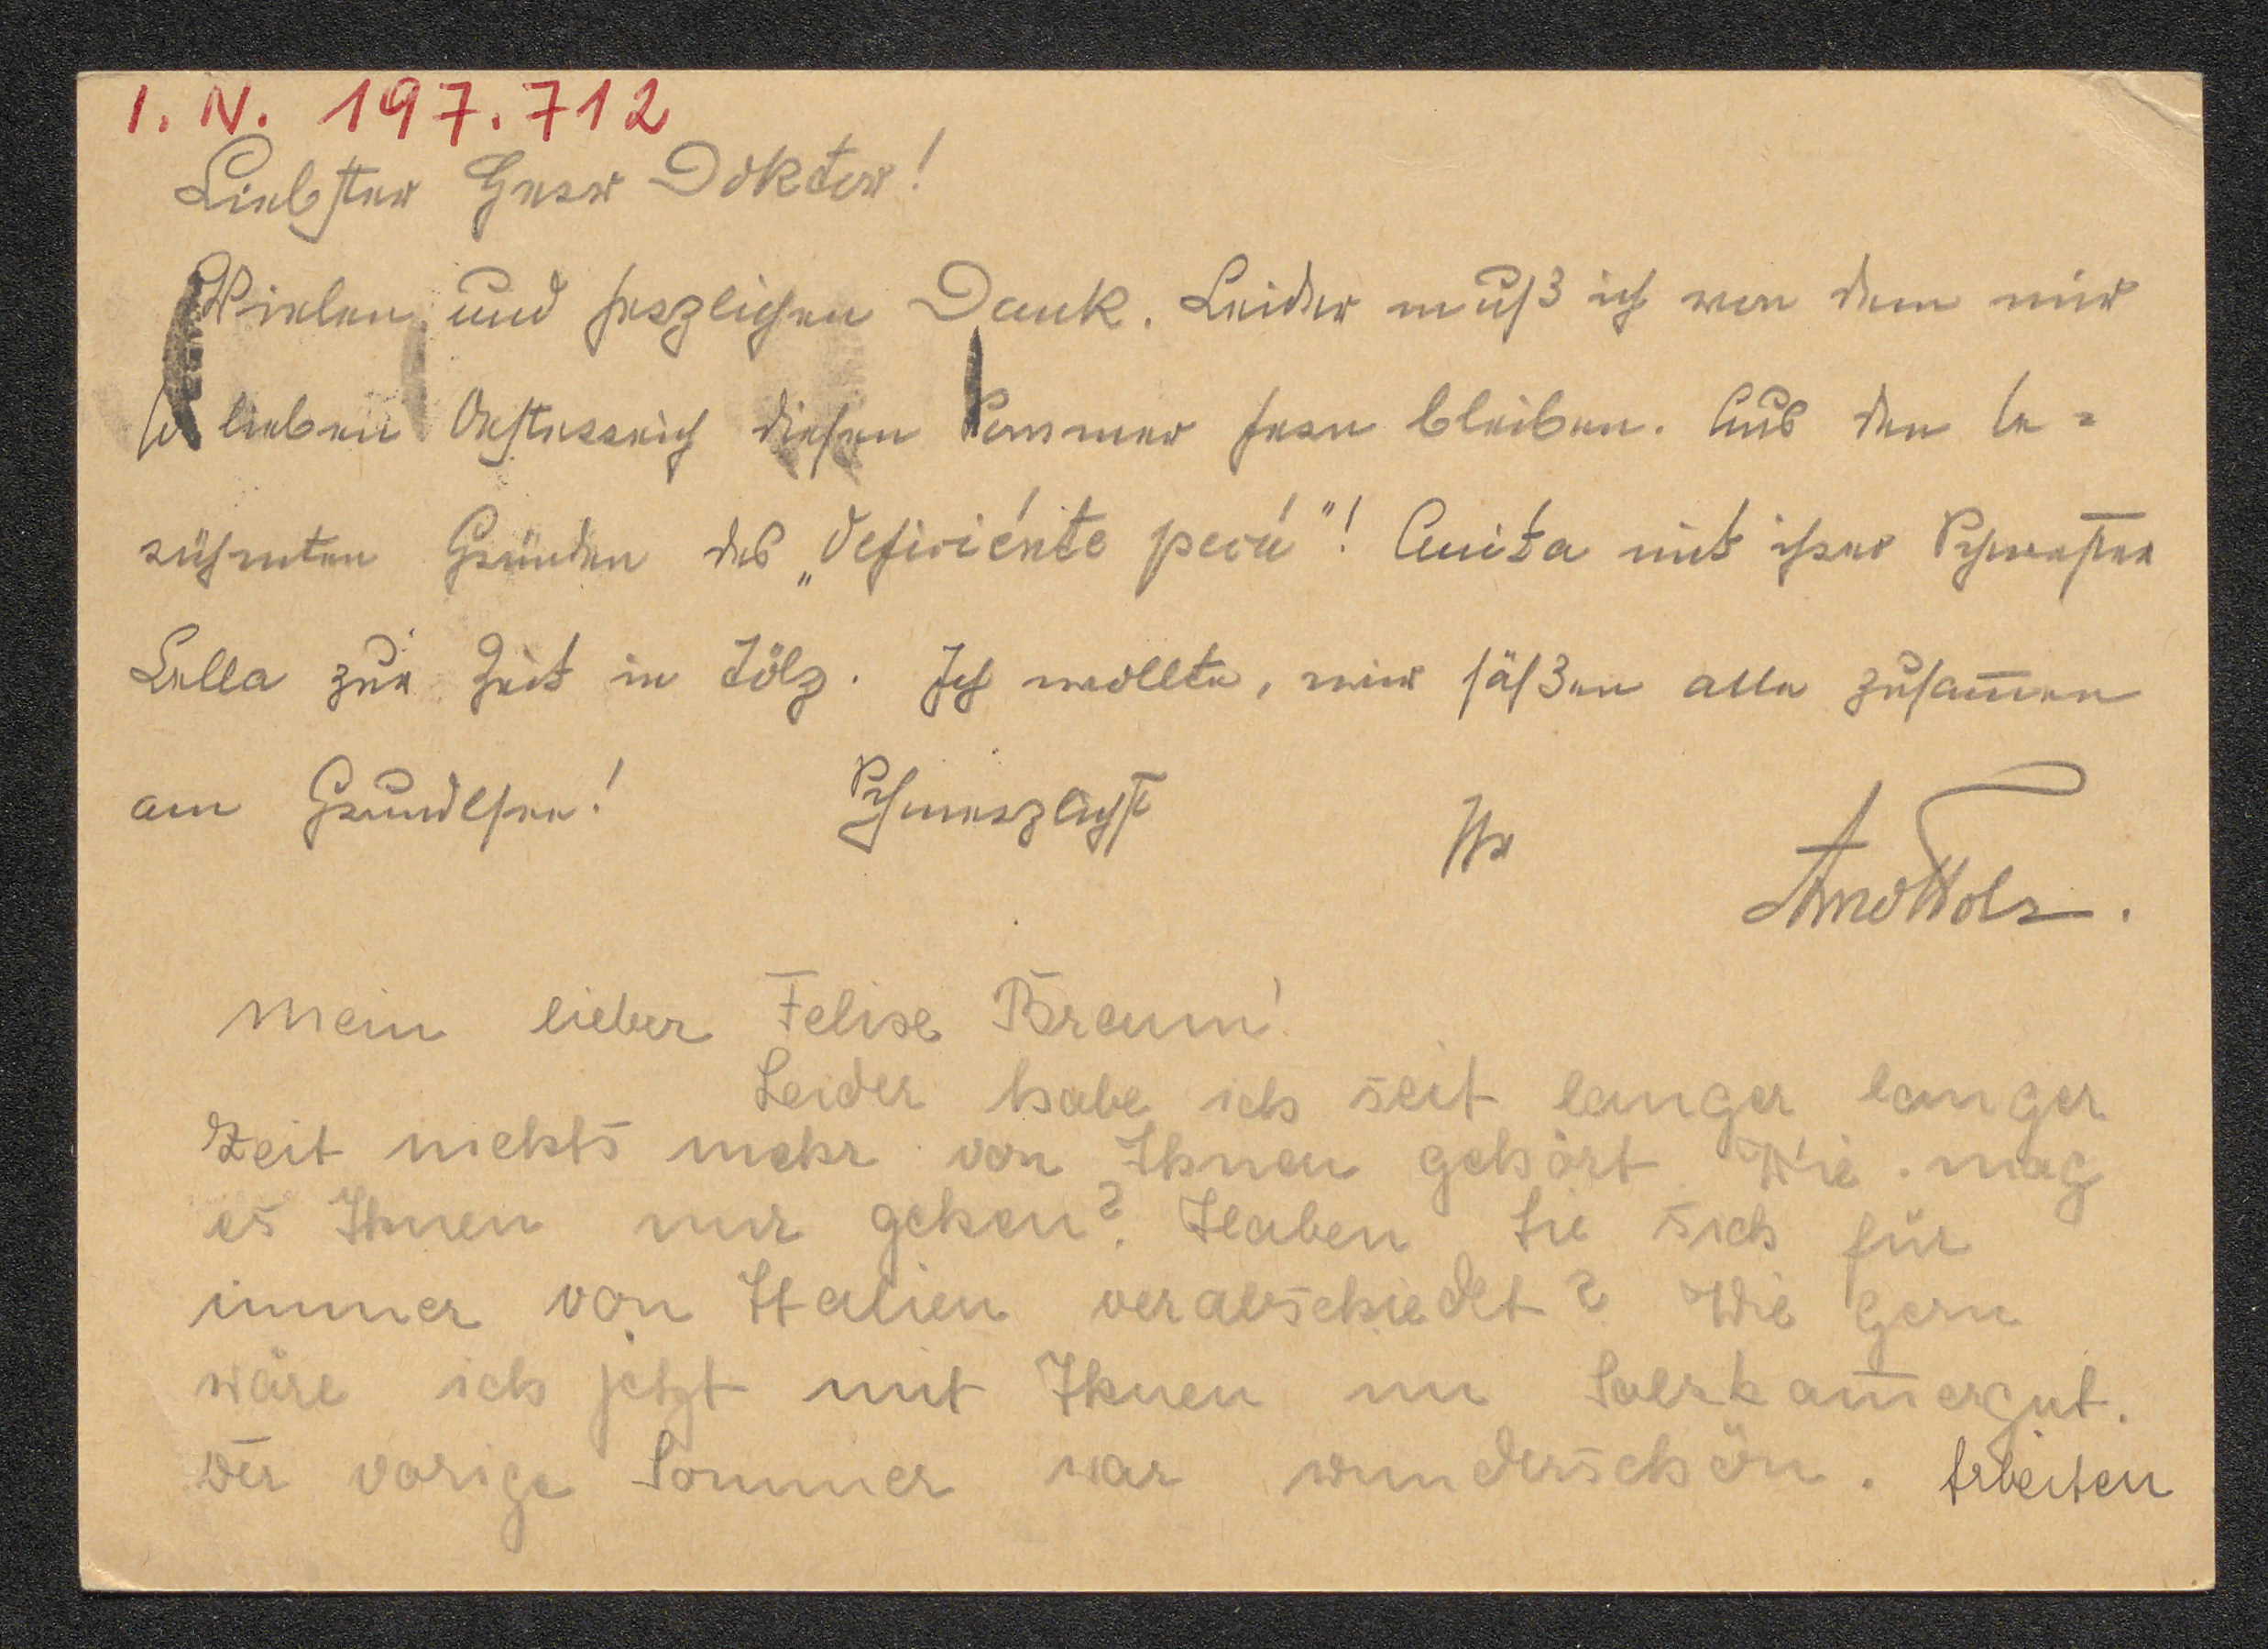 I. N. 197.712
Liebster Herr Doktor!
Vielen und herzlichen Dank. Leider muß ich von dem mir
so lieben Oesterreich diesen Sommer fern bleiben. Aus den be=
rühmten Gründen des „deficiénte pecú"! Anita mit ihrer Schwester
Lella zur Zeit in Tölz. Ich wollte, wir säßen alle zusam̅en
am Grundlsee! Schmerzlichst
Ihr
Arno Holz.
Mein lieber Felix Braun!
Leider habe ich seit langer langer
Zeit nichts mehr von Ihnen gehört. Wie mag
es Ihnen nur gehen? Haben Sie sich für
immer von Italien verabschiedet? Wie gern
wäre ich jetzt mit Ihnen im Salzkam̅ergut.
Der vorige Sommer war wunderschön. Arbeiten